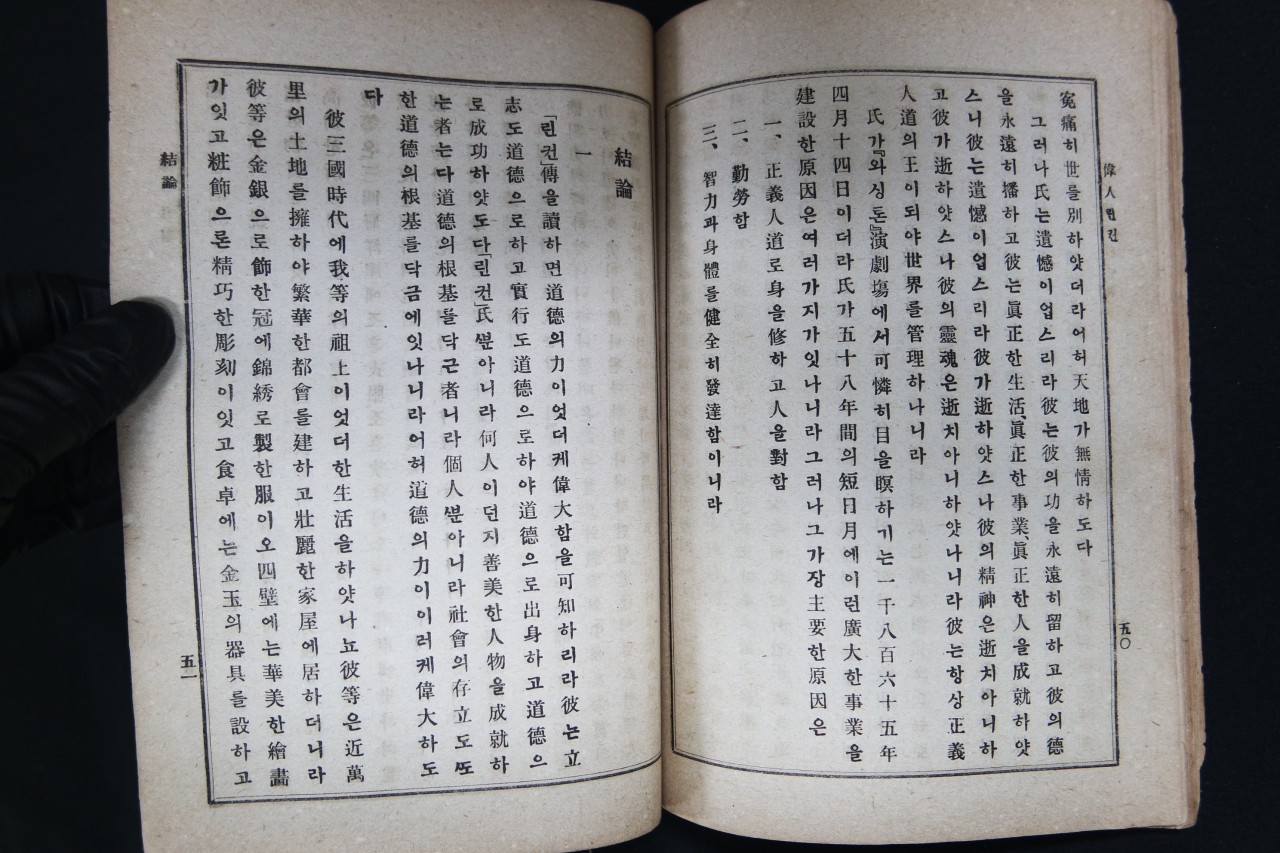 偉人린컨
五〇
寃痛히世를別하얏더라어허天地가無情하도다
그러나氏는遺憾이업스리라彼는彼의功을永遠히留하고彼의德
을永遠히播하고彼는眞正한生活、眞正한事業、眞正한人을成就하얏
스니彼는遺憾이업스리라彼가逝하얏스나彼의精神은逝치아니하
고彼가逝하얏스나彼의靈魂은逝치아니하얏나니라彼는항상正義
人道의王이되야世界를管理하나니라
氏가『와싱톤』演劇塲에서可憐히目을瞑하기는一千八百六十五年
四月十四日이더라氏가五十八年間의短日月에이런廣大한事業을
建設한原因은여러가지가잇나니라그러나그가장主要한原因은
一、正義人道로身을修하고人을對함
二、勤勞함
三、智力과身體를健全히發達함이니라
結論
一
「린컨」傳을讀하면道德의力이엇더케偉大함을可知하리라彼는立
志도道德으로하고實行도道德으로하야道德으로出身하고道德으
로成功하얏도다「린컨」氏ᄲᅮᆫ아니라何人이던지善美한人物을成就하
는者는다道德의根基를닥근者니라個人ᄲᅮᆫ아니라社會의存立도ᄯᅩ
한道德의根基를닥금에잇나니라어허道德의力이이러케偉大하도
다
彼三國時代에我等의祖上이엇더한生活을하얏나뇨彼等은近萬
里의土地를擁하야繁華한都會를建하고壯麗한家屋에居하더니라
彼等은金銀으로飾한冠에錦綉로製한服이오四壁에는華美한繪畵
가잇고粧飾으론精巧한彫刻이잇고食卓에는金玉의器具를設하고
結論
五一